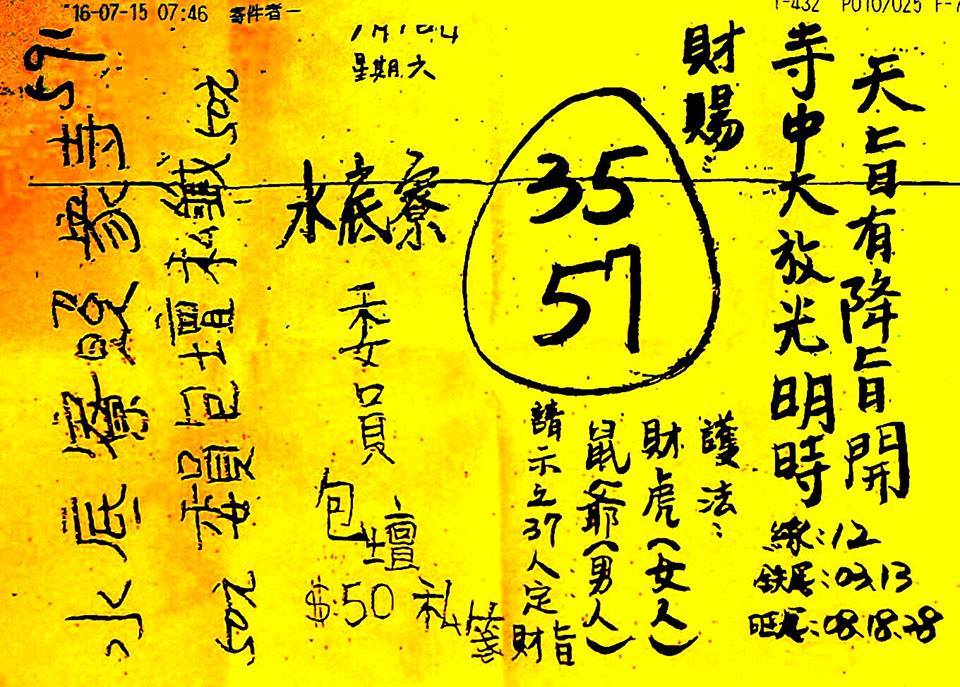 '16-07-15 07:46 寄件者-
P010/025
天旨有降旨開
寺中大放光明時
線:12
鉄尾:03.13
旺尾:08.18.28
財賜:
35
57
護法:
財虎(女人)
鼠爺(男人)
請示立37人定財旨
星期六
水底寮
委員包壇
$:50 私簽
水底寮